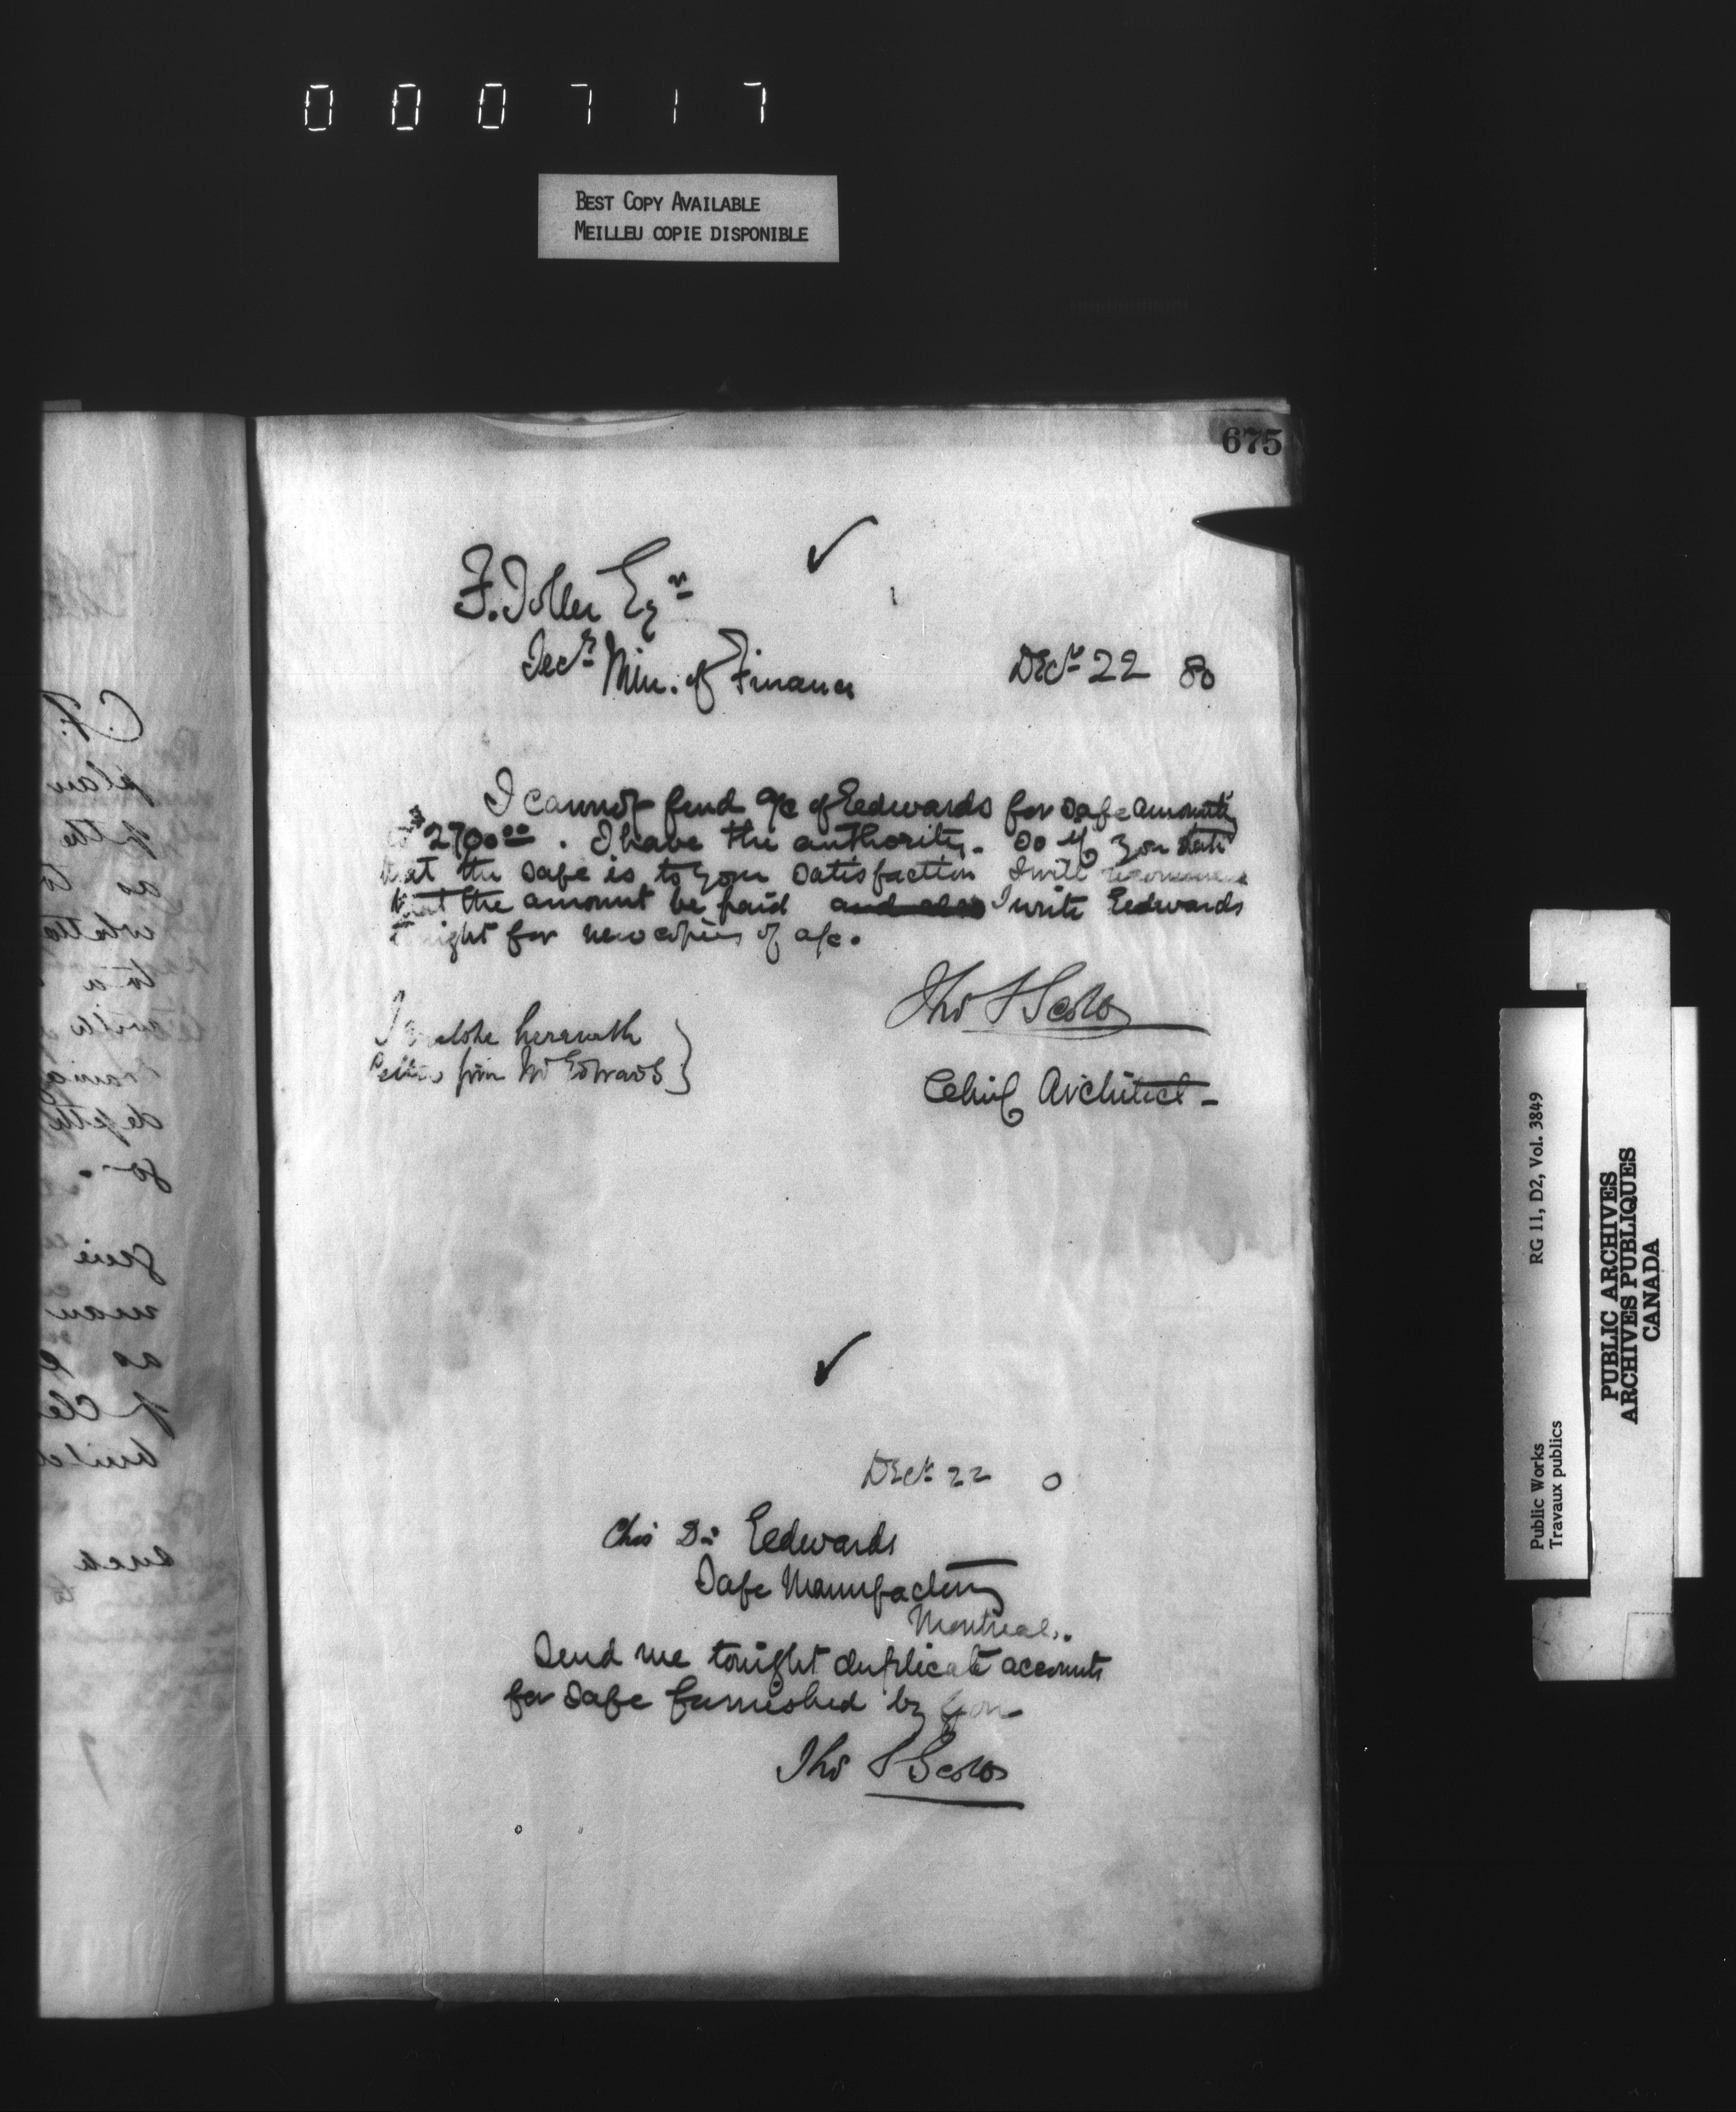 000717
BEST COPY AVAILABLE
MEILLEU COPIE DISPONIBLE
675
F. Toller Esqr
Secy Min. of Finance
Decr 22 80
I cannot find a/c of Eedwards for safe amounting
to $2700.00. I have the authority. So if you state
that the safe is to your satisfaction I will recommend
that the amount be paid and also I write Eedwards
tonight for new copies of a/c.
Thos S Scott
Chief Architect
I enclose herewith
letter from Mr Edwards
Decr 22 0
Chs D. Eedwards
Safe Manufactory
Montreal.
Send me tonight duplicate accounts
for safe furnished by you
Thos S Scott
RG 11, D2, Vol. 3849
Public Works
Travaux publics
PUBLIC ARCHIVES
ARCHIVES PUBLIQUES
CANADA